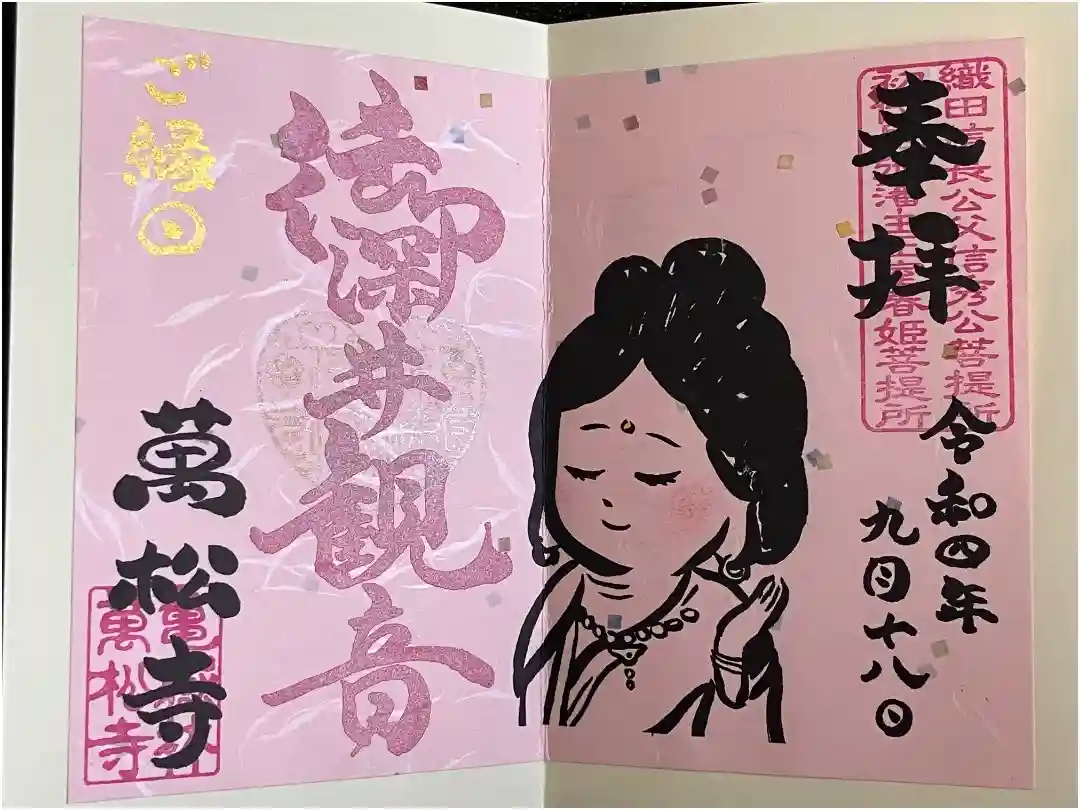 織田信長公父信秀公菩提所
藩主春姫菩提所
奉拝
令和四年
九月十八日
御深井観音
ご縁日
萬松寺
萬松寺